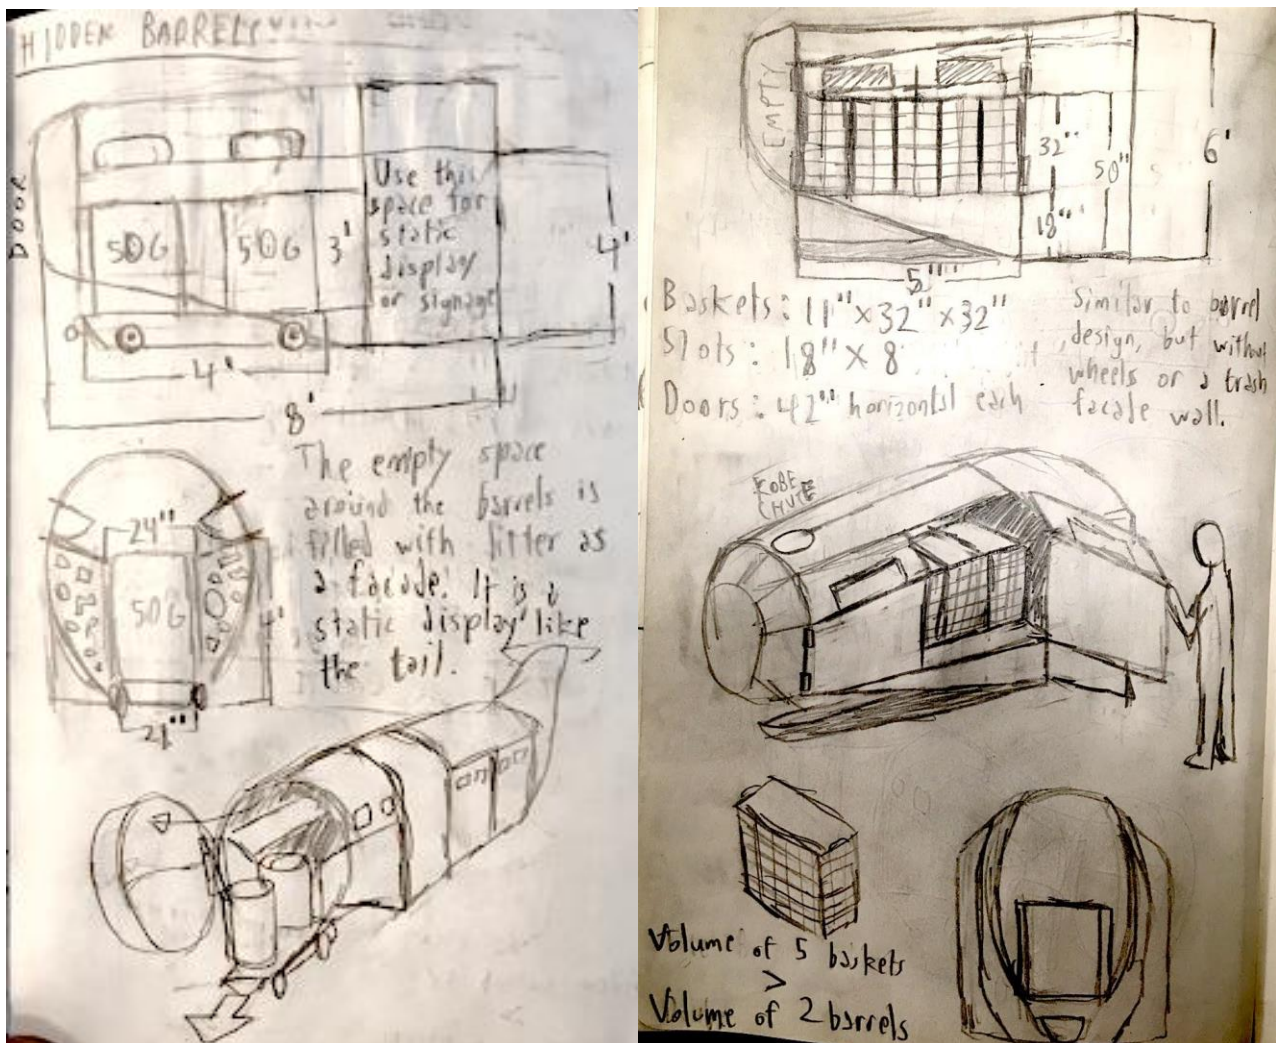 HIDDEN BARREL
DOOR
50G
50G
3'
Use this
space for
static
display
or signage
4'
4'
8'
24"
50G
4'
21"
The empty space
around the barrels is
filled with litter as
a facade. It is a
static display like
the tail.
EMPTY
32"
50"
18"
6'
5"
Baskets: 11" x 32" x 32"
Slots: 18" x 8
Doors: 42" horizontal each
Similar to barrel
design, but without
wheels or a trash
facade wall.
KOBE
CHUTE
Volume of 5 baskets
>
Volume of 2 barrels